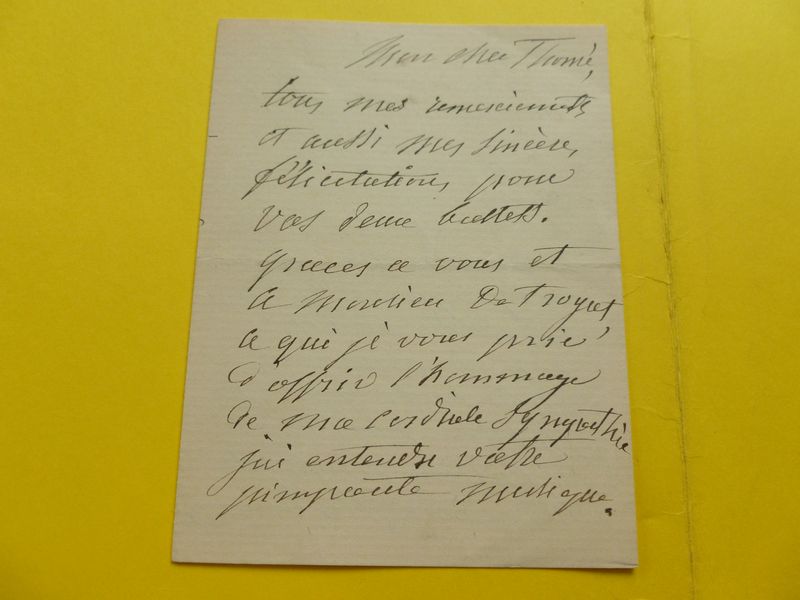 Mon cher Thomé,
tous mes remerciements
et aussi mes sincères
félicitations pour
vos deux ballets.
graces a vous et
a monsieur De Troyat
a qui je vous prie
d'offrir l'hommage
de ma cordiale sympathie
j'ai entendre votre
pimpante musique.